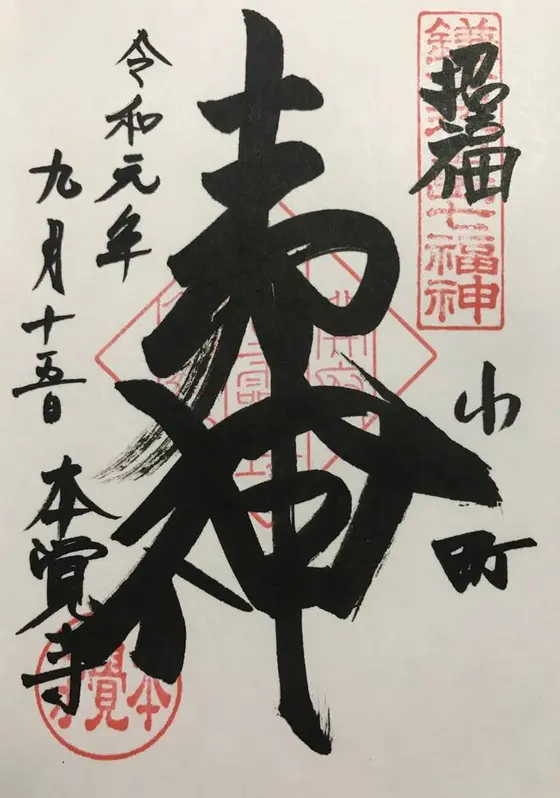 鎌 七福神
招福
小町
夷神
令和元年
九月十五日
本覺寺
本覺寺